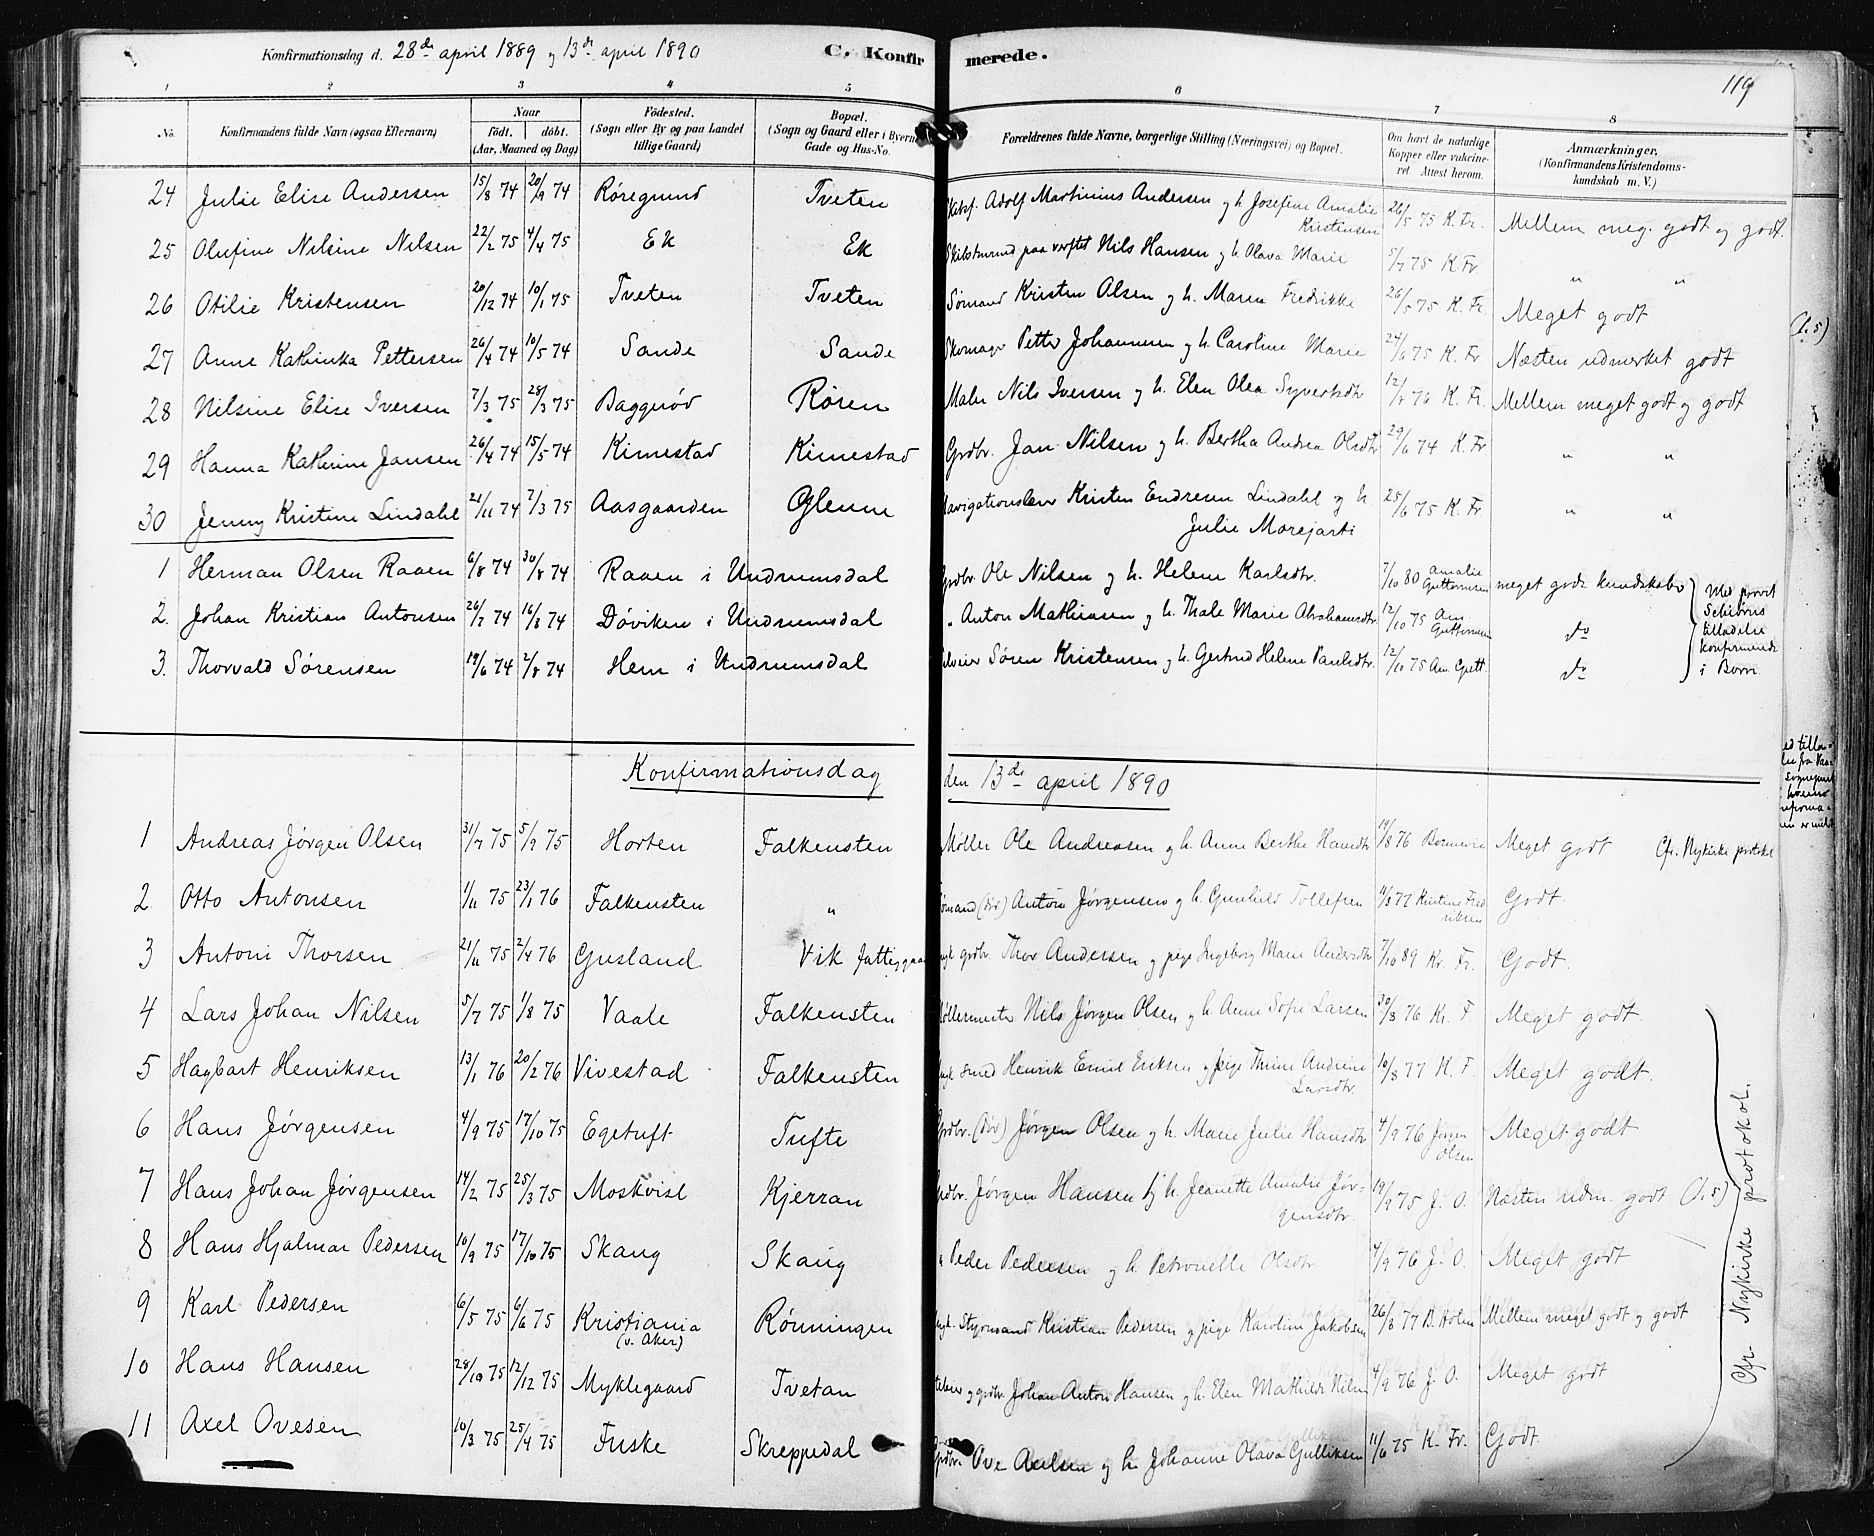 Konfirmationsdag d. 28de april 1889 og 13de april 1890 C. Konfirmerede. 119
1 2 3 4 5 6 7 8
No. Konfirmandens fulde Navn (ogsaa Efternavn) Naar født. døbt. (Aar, Maaned og Dag) Fødested. (Sogn eller By og paa Landet tillige Gaard) Bopæl. (Sogn og Gaard eller i Byerne Gade og Hus-No. Forældrenes fulde Navne, borgerlige Stilling (Næringsvei) og Bopæl. Om havt de naturlige Kopper eller vakcineret. Attest herom. Anmærkninger, (Konfirmandens Kristendomskundskab m. V.)
24 Julie Elise Andersen 15/8 74 20/9 74 Røregrund Tveten Adolf Martinius Andersen og h. Josefine Amalie Kristensen 26/5 75 K. Fr. Mellem meg. godt og godt
25 Olufine Nilsine Nilsen 22/2 75 4/4 75 Ek Ek paa verftet Nils Hansen og h. Olava Marie 5/7 75 K Fr. " "
26 Otilie Kristensen 20/12 74 10/1 75 Tveten Tveten Sømand Kristen Olsen og h. Maren Fredrikke 26/5 75 K. Fr. Meget godt
27 Anne Kathinka Pettersen 26/4 74 10/5 74 Sande Sande Skomager Petter Johannesen og h. Caroline Marie 24/6 75 K. Fr Næsten udmærket godt
28 Nilsine Elise Iversen 7/3 75 28/3 75 Baggerød Røren Maler Nils Iversen og h. Elen Olea Syvertsdtr 12/8 76 K. Fr. Mellem meget godt og godt
29 Hanna Kathrine Jansen 26/4 74 15/5 74 Kimestad Kimestad Grdbr. Jan Nilsen og h. Bertha Andrea Olsdtr 29/6 74 K. Fr " "
30 Jenny Kristine Lindahl 21/11 74 7/3 75 Aasgaarden Glenne Navigationslærer Kristen Endresen Lindahl og h. Julie 25/6 75 K. Fr " "
1 Herman Olsen Raaen 6/8 74 30/8 74 Raaen i Undrumsdal Grdbr. Ole Nilsen og h. Helene Karlsdtr. 7/10 80 Amalie Guttormsen meget gode kundskaber
2. Johan Kristian Antonsen 26/7 74 16/8 74 Døviken i Undrumsdal " Anton Mathiasen og h. Thale Marie Abrahamsdtr. 12/10 75 Am. Guttormsen do
3. Thorvald Sørensen 19/6 74 2/8 74 Hem i Undrumsdal Søren Kristensen og h. Gertrud Helene Paulsdtr. 12/10 75 Am. Gutt. do
Med provst Schiørns tilladelse konfirmerede i Borre.
(1.5)
Konfirmationsdag den 13de april 1890
1 Andreas Jørgen Olsen 31/7 75 5/9 75 Horten Falkensten Møller Ole Andreasen og h. Anne Berthe Hansdtr 19/8 76 Meget godt Cfr. Nykirke protokol
2. Otto Antonsen 1/11 75 23/1 76 Falkensten " Sømand (død) Anton Jørgensen og h. Gunhild Tollefsen 11/8 77 Kristine Fredriksen Godt.
3 Anton Thorsen 21/11 75 2/4 76 Gusland Vik fattiggaard ugk. grdbr. Thor Andersen og pige Ingeborg Marie Andersdtr 7/10 89 Kr. Fr. Godt.
4 Lars Johan Nilsen 5/7 75 1/8 75 Vaale Falkensten Møllermester Nils Jørgen Olsen og h. Anne Sofie Larsen 30/8 76 Kr. F. Meget godt.
5 Hagbart Henriksen 13/1 76 20/2 76 Vivestad Falkensten ugk. smed Henrik Emil Eriksen og pige Thrine Andrine Larsdtr. 10/8 77 K. F. Meget godt.
6 Hans Jørgensen 4/9 75 17/10 75 Egetuft Tufte Grdbr. (død) Jørgen Olsen og h. Maren Julie Hansdtr 4/9 76 Jørgen Olsen Meget godt
7 Hans Johan Jørgensen 14/2 75 25/3 75 Moskvisl Kjerran Grdbr. Jørgen Hansen og h. Jeanette Amalie Jørgensdtr. 19/9 75 J. O. Næsten udm. godt (1.5)
8 Hans Hjalmar Pedersen 10/9 75 17/10 75 Skaug Skaug " Peder Pedersen og h. Petronelle Olsdtr. 4/9 76 J. O. Meget godt
9 Karl Pedersen 6/5 75 6/6 75 Kristiania (v. Aker) Rønningen ugk. Styrmand Kristian Pedersen og pige Karoline Jakobsen 26/8 77 B. Holm Mellem meget godt og godt
10 Hans Hansen 28/10 75 12/12 75 Myklegaard Tvetan og grdbr. Johan Anton Hansen og h. Elen Mathilde Nilsen 4/9 76 J. O. Meget godt
11 Axel Ovesen 10/3 75 25/4 75 Fuske Skreppedal Grdbr. Ove Axelsen og h. Johanne Olava Gulliksen 11/6 75 K. Fr. Godt.
Cfr. Nykirke protokol.